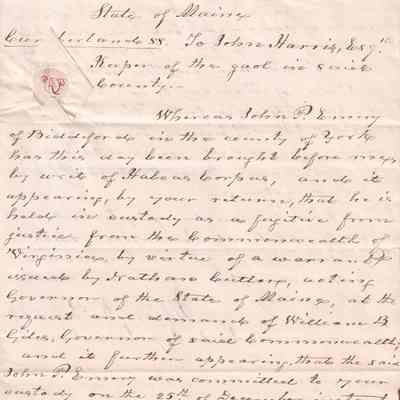 State of Maine
Cumberland ss. To John Harris, Esqr.
Keeper of the gaol in said
County.
Whereas John P. Emery
of Biddeford in the county of York
has this day been brought before me,
by writ of Habeas Corpus, and it
appearing, by your return, that he is
held in custody as a fugitive from
justice from the Commonwealth of
Virginia, by virtue of a warrant
issued by Nathan Cutler, acting
Governor of the State of Maine, at the
request and demand of William B
Giles, Governor of said Commonwealth,
and it further appearing, that the said
John P. Emery was committed to your
custody on the 25th of December instant